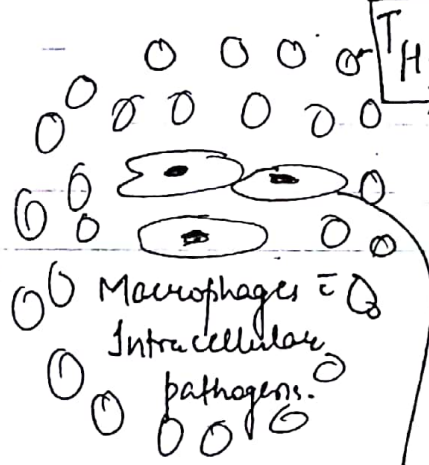 TH
Macrophages c̄
Intracellular
pathogens.